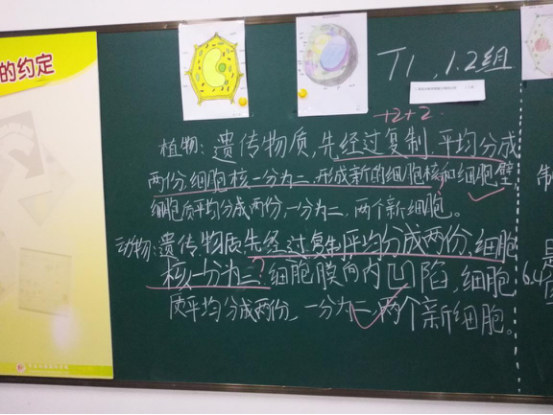 的约定
T1, 1.2组
+2+2
植物:遗传物质,先经过复制,平均分成
两份,细胞核一分为二,形成新的细胞核和细胞壁,
细胞质平均分成两份,一分为二,两个新细胞。
动物:遗传物质先经过复制平均分成两份,细胞
核一分为二,细胞膜向内凹陷,细胞
质平均分成两份,一分为二,两个新细胞。
6.4